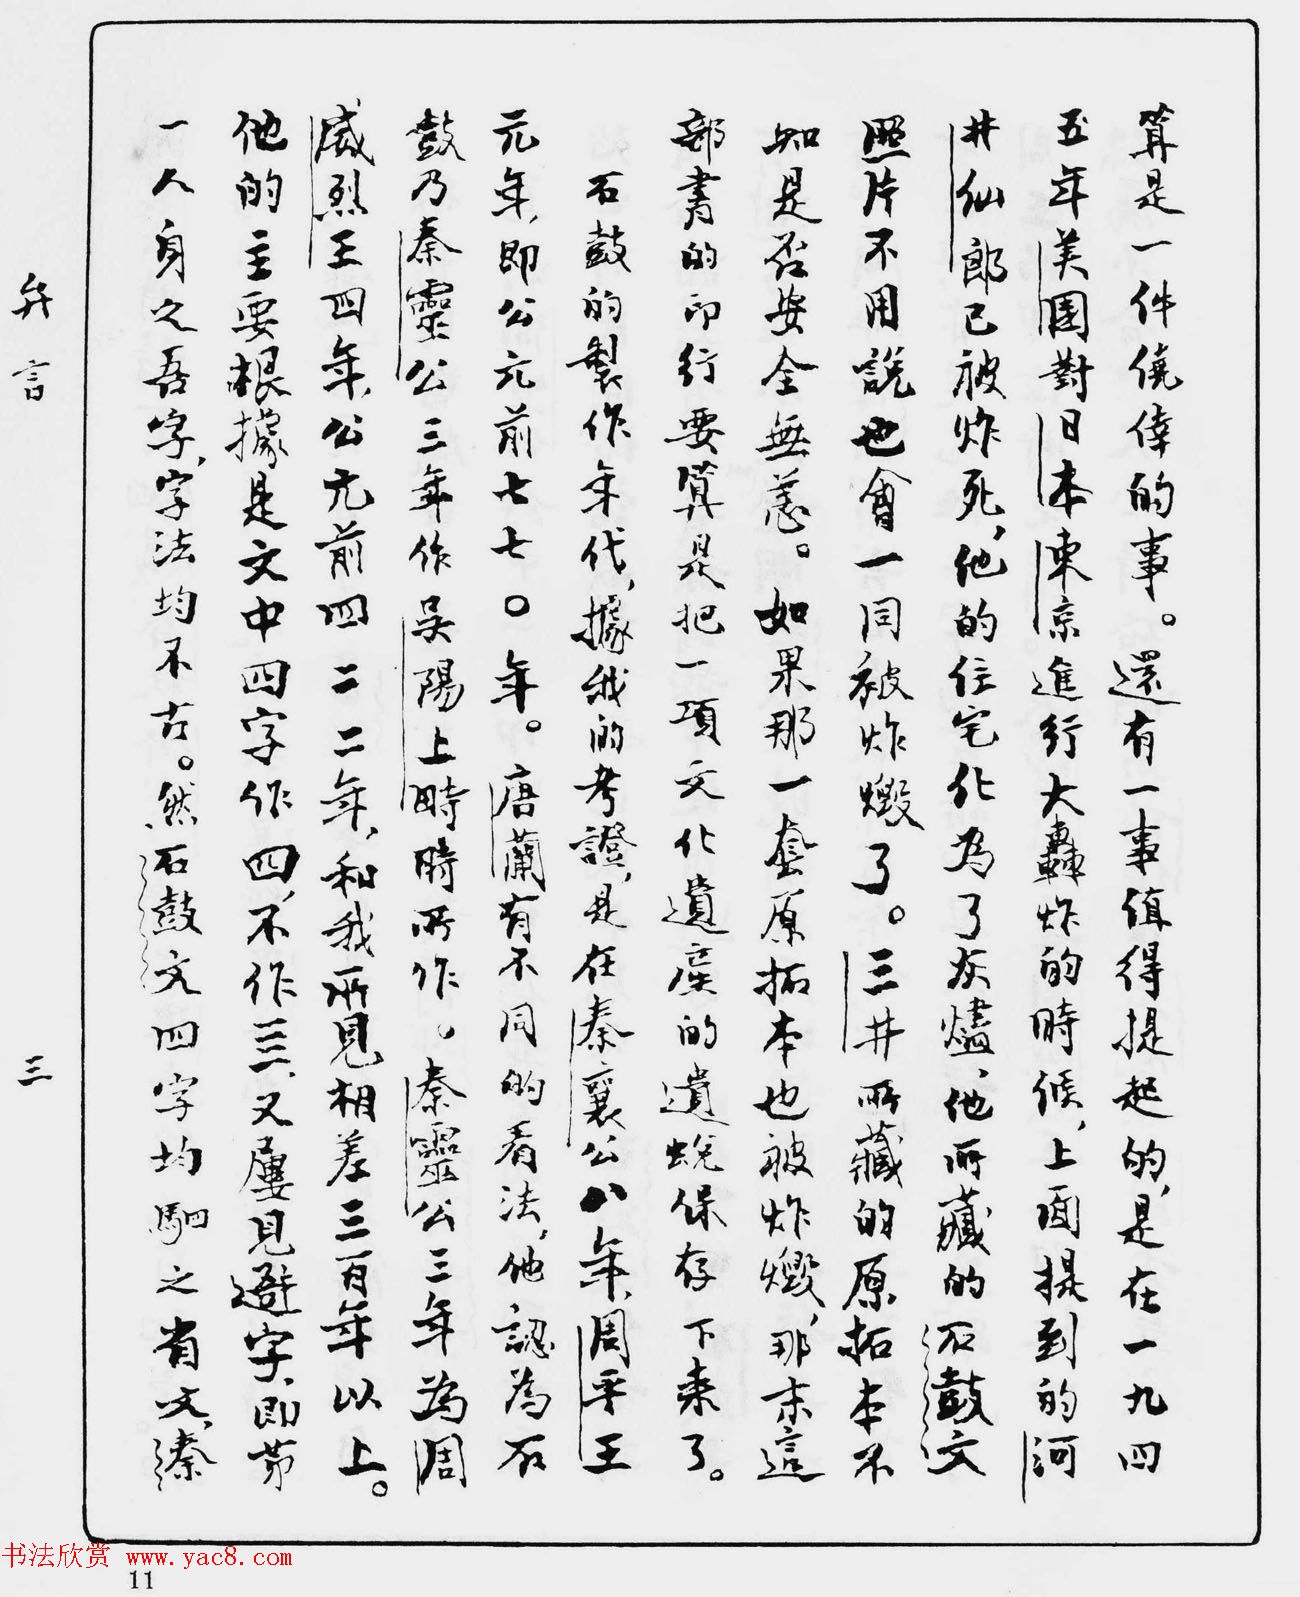 算是一件僥倖的事。還有一事值得提起的,是在一九四
五年美國對日本東京進行大轟炸的時候,上面提到的河
井仙郎已被炸死,他的住宅化為了灰燼、他所藏的石鼓文
照片不用說也會一同被炸燬了。三井所藏的原拓本不
知是否安全無恙。如果那一套原拓本也被炸燬,那末這
部書的印行要算是把一項文化遺產的遺蛻保存下来了。
石鼓的製作年代,據我的考證,是在秦襄公八年,周平王
元年,即公元前七七〇年。唐蘭有不同的看法,他認為石
鼓乃秦靈公三年作吴陽上畤時所作。秦靈公三年為周
威烈王四年,公元前四二二年,和我所見相差三百年以上。
他的主要根據是文中四字作四,不作亖,又屢見避字,即第
一人身之吾字,字法均不古。然石鼓文四字均駟之省文,秦
弁言
三
书法欣赏 www.yac8.com
11